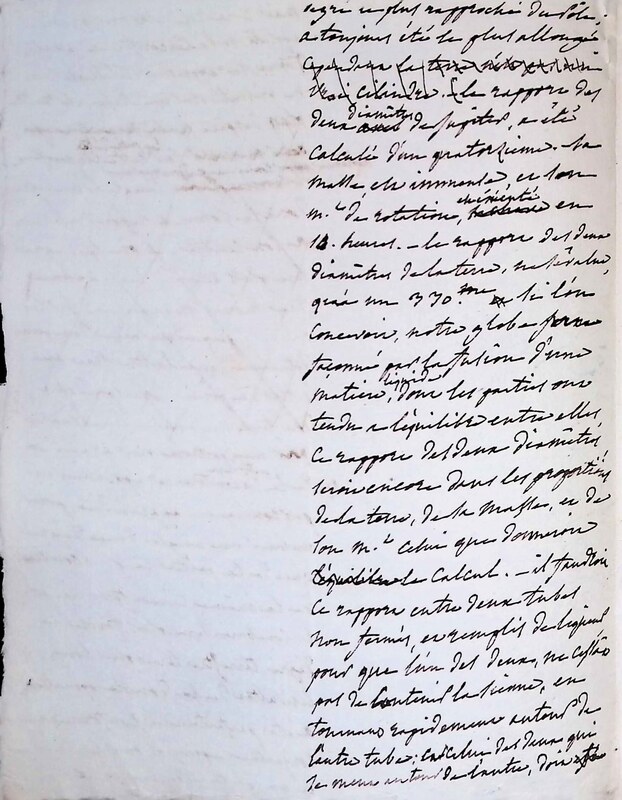 degré le plus rapproché du Pôle,
a toujours été le plus allongé
cependant la terre
cilindre. le rapport des
deux axes diamêtres de Jupiter, a été
calculé d'un quatorzieme. Sa
masse, est immense, et son
m.t de rotation, exécuté en
10. heures. – le rapport des deux
diamêtres de la terre, ne s'évalue,
qu'à un 330.me et si l'on
concevoit, notre globe
façonné par la fusion d'une
matière, liquide dont les parties ont
tendu a l'équilibre entre elles
ce rapport des deux diamêtres
seroit encore dans les proportions
de la terre, de sa masse, et de
son m.t celui que donneroit
l'équilibre le calcul. – il faudroit
ce rapport entre deux tubes
non fermés, et remplis de liqueur
pour que l'un des deux, ne cessât
pas de contenir la sienne, en
tournant rapidement autour de
l'autre tube; car celui des deux qui
se meut autour de l'autre, doit